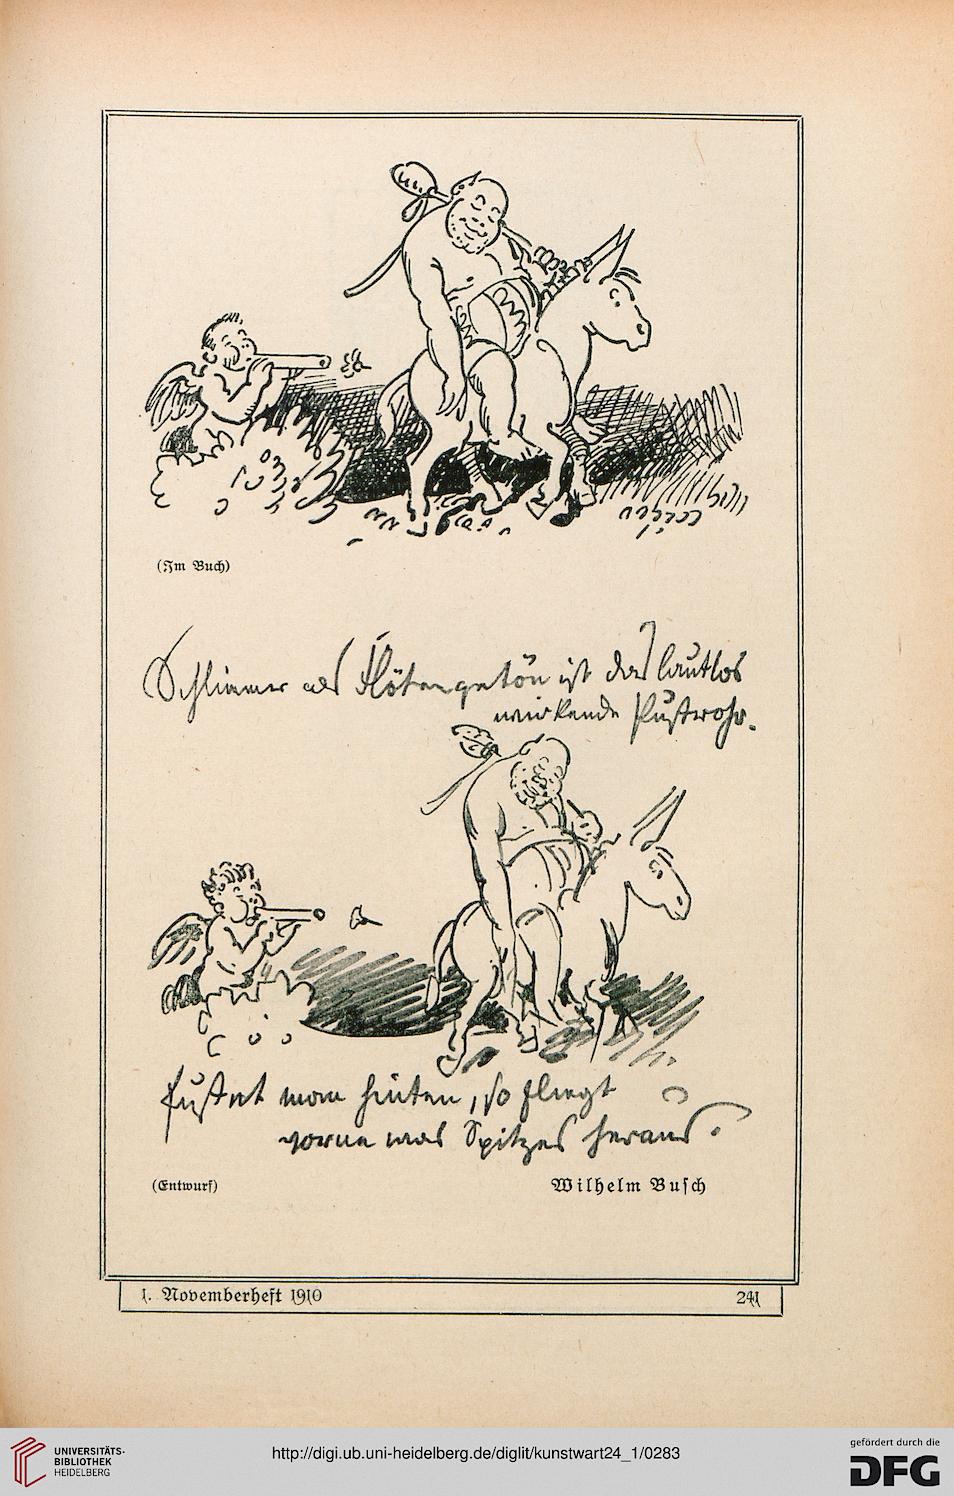 (Im Buch)
Schlimmer als Flötengetön ist das lautlos
wirkende Pustrohr.
Pustet man hinten, so fliegt
vorne was Spitzes heraus.
(Entwurf)
Wilhelm Busch
1. Novemberheft 1910
241
UNIVERSITÄTS-
BIBLIOTHEK
HEIDELBERG
http://digi.ub.uni-heidelberg.de/diglit/kunstwart24_1/0283
gefördert durch die
DFG